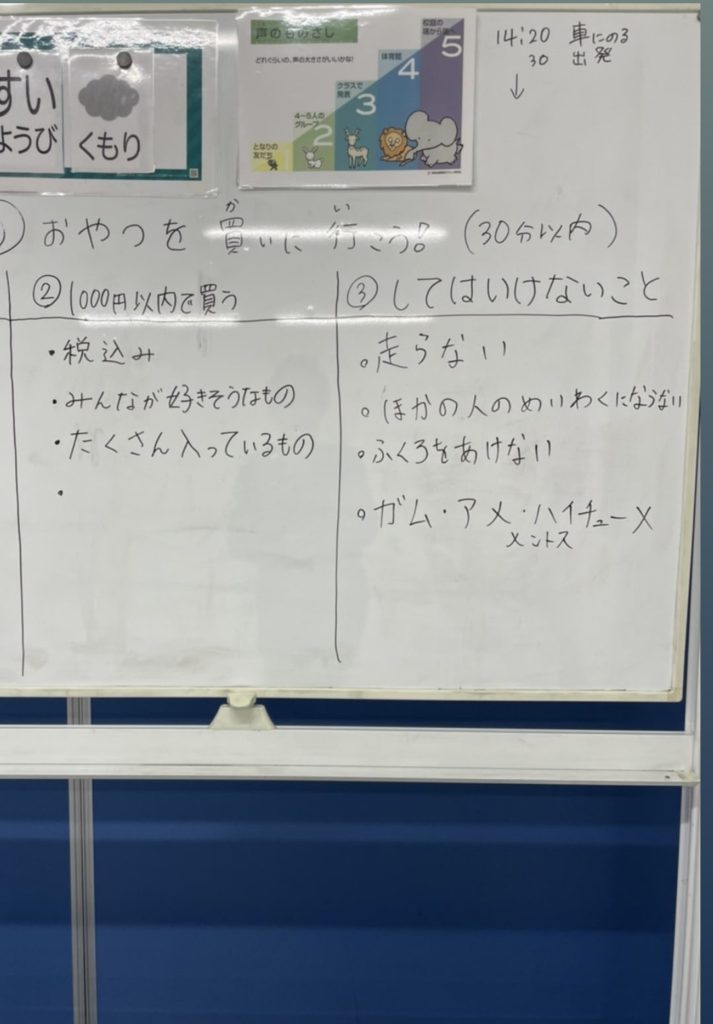 すい
ようび
くもり
声のものさし
どれくらいの、声の大きさがいいかな?
校庭の
端から端へ
5
体育館
4
クラスで
発表
3
4〜6人の
グループ
2
となりの
友だち
1
14:20 車にのる
30 出発
↓
おやつを買いに行こう! (30分以内)
か い
② 1000円以内で買う
・税込み
・みんなが好きそうなもの
・たくさん入っているもの
・
③ してはいけないこと
○走らない
○ほかの人のめいわくにならない
○ふくろをあけない
○ガム・アメ・ハイチュー×
メントス